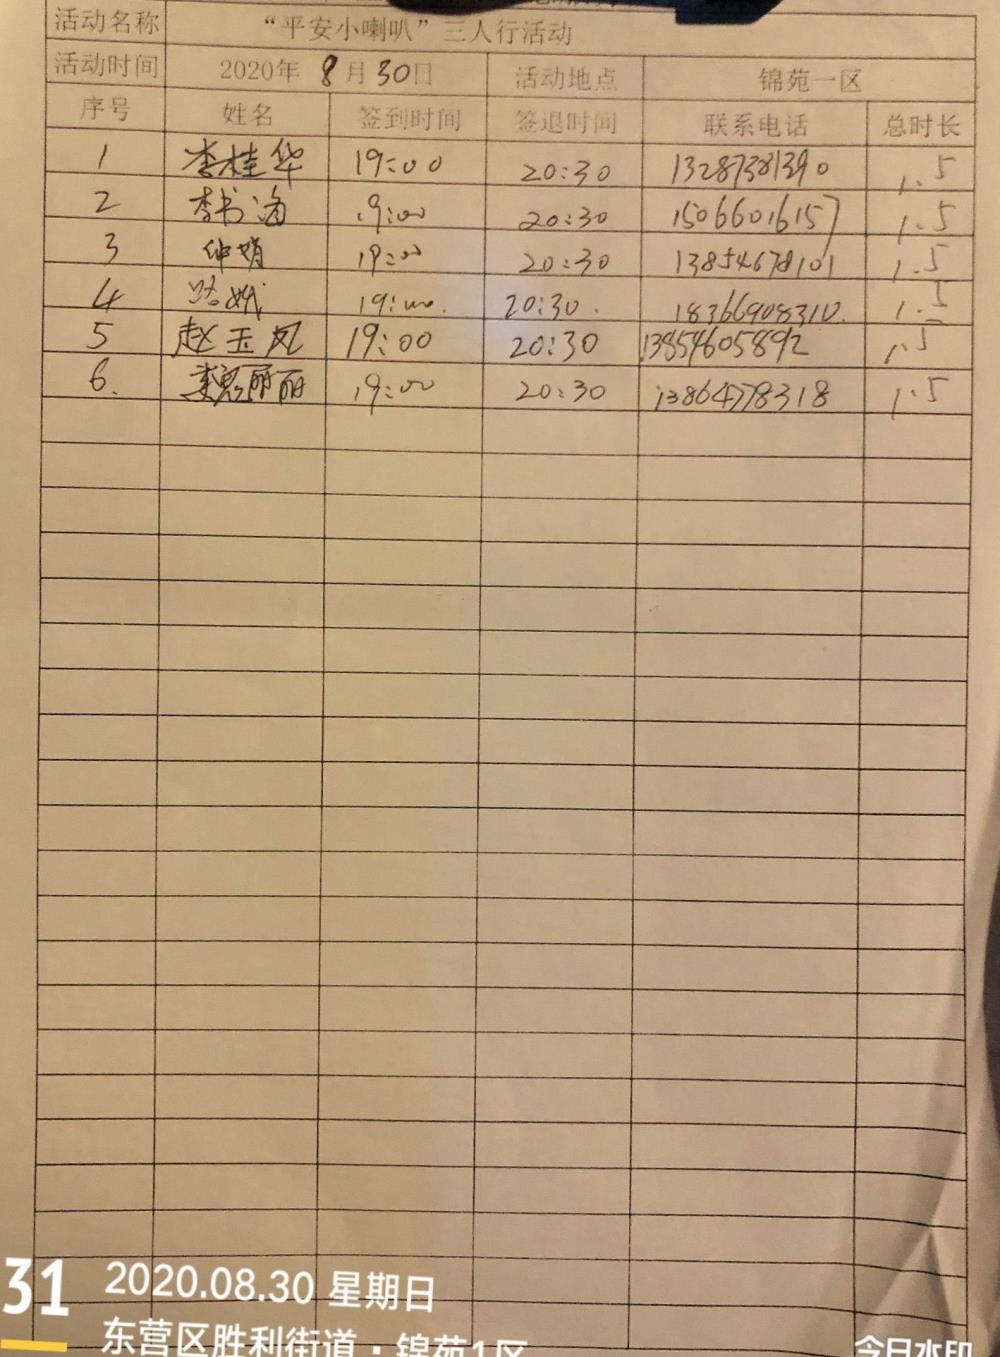 活动名称 “平安小喇叭”三人行活动
活动时间 2020年 8月30日 活动地点 锦苑一区
序号 姓名 签到时间 签退时间 联系电话 总时长
1 李桂华 19:00 20:30 13287381390 1.5
2 李书海 19:00 20:30 15066016157 1.5
3 仲娟 19:00 20:30 13854678101 1.5
4 路娥 19:00. 20:30. 18366908310. 1.5
5 赵玉凤 19:00 20:30 13854605892 1.5
6. 丽丽 19:00 20:30 13864778318 1.5
31 2020.08.30 星期日
东营区胜利街道·锦苑1区
今日水印